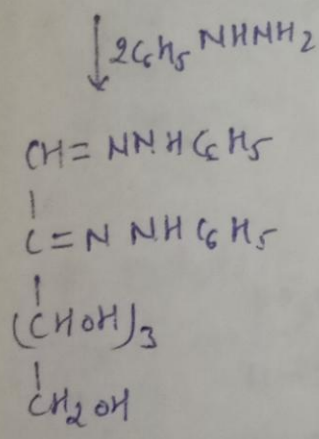 2C6H5 NHNH2
CH= NNHC6H5
C=N NHC6H5
(CHOH)3
CH2OH